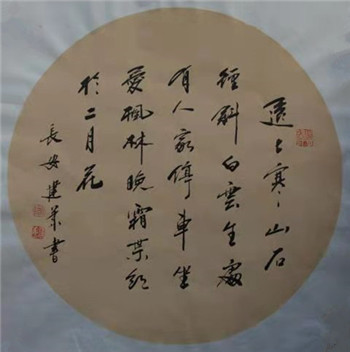 遠上寒山石
徑斜白雲生處
有人家停車坐
愛楓林晚霜葉紅
於二月花
長安建業書